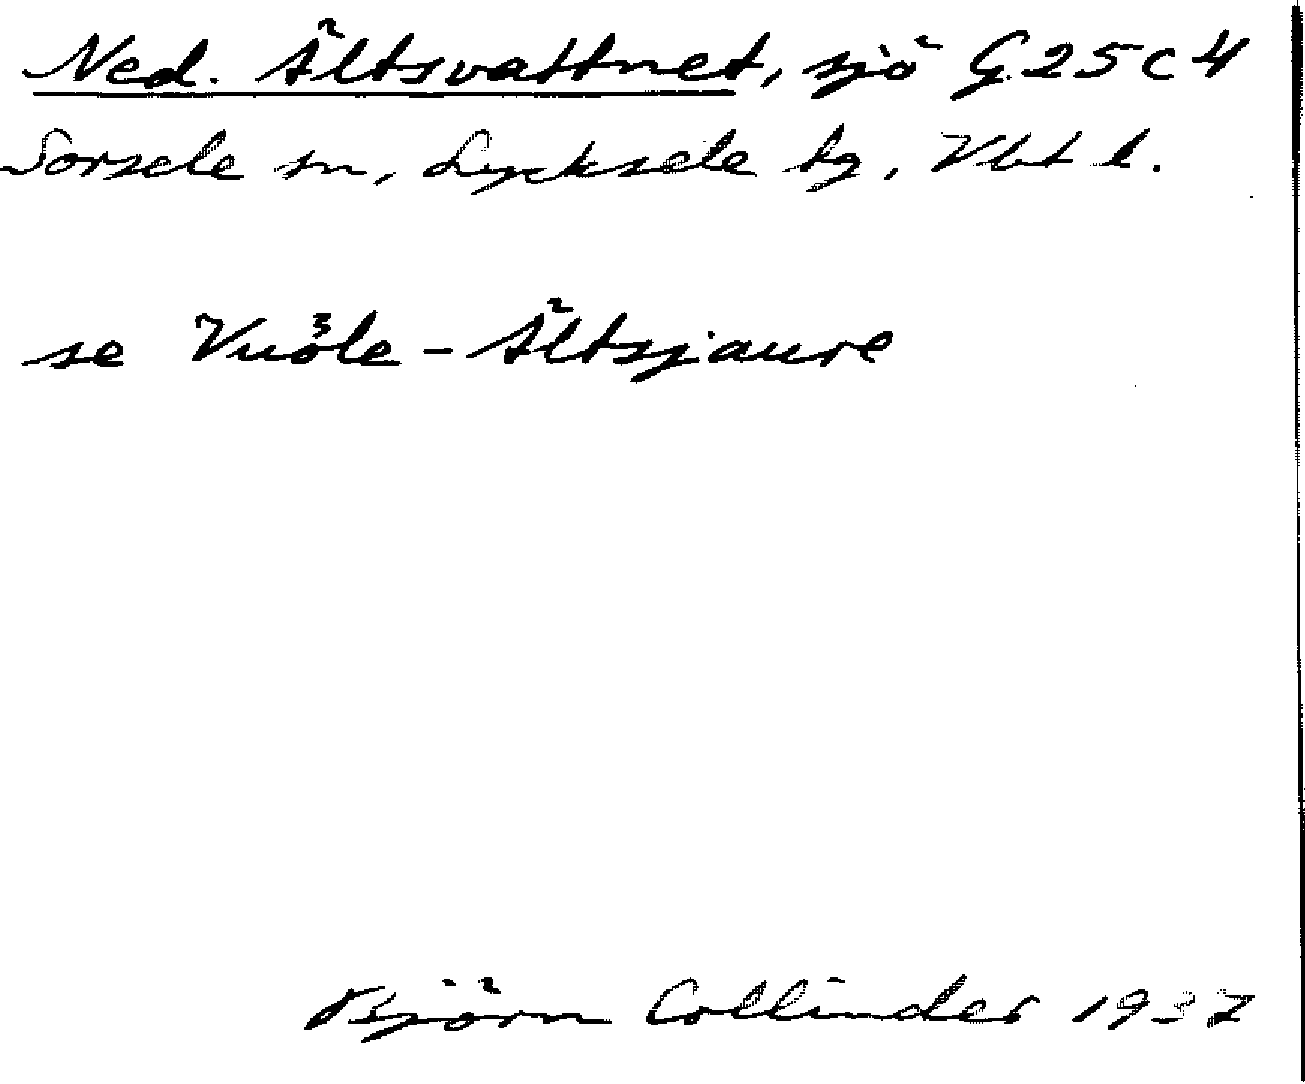 Ned. Ältsvattnet, sjö G.25C4
Sorsele sn, Lycksele tg, Vbt l.
se Vuöle-Ältsjaure
Björn Collinder 1937